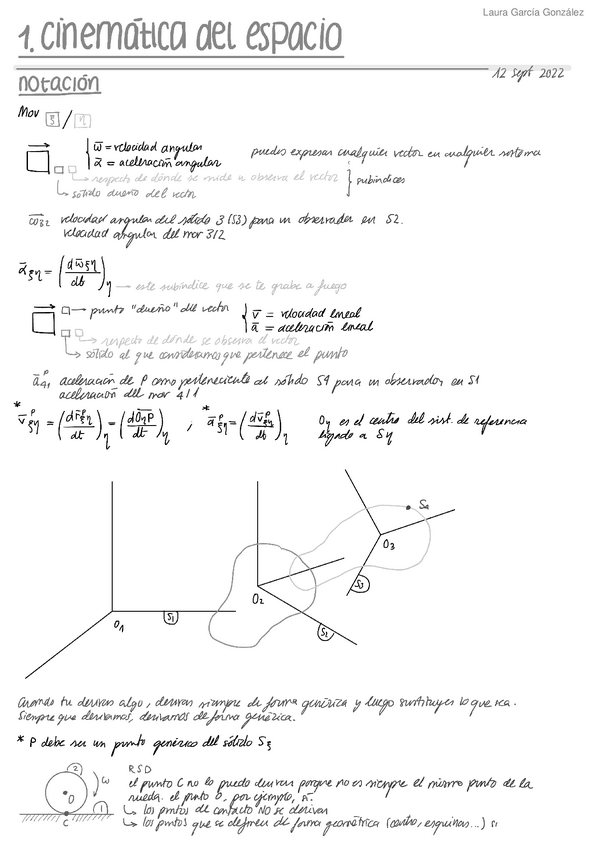 Laura García González
1. cinemática del espacio
12 sept 2022
notación
Mov ξ / η
ω̄ = velocidad angular
ᾱ = aceleración angular
puedes expresar cualquier vector en cualquier sistema
respecto de dónde se mide u observa el vector
subíndices
sólido dueño del vector
ω̄32 velocidad angular del sólido 3 (S3) para un observador en S2.
velocidad angular del mov 3/2
ᾱξη = (dω̄ξη/dt)η
este subíndice que se te grabe a fuego
punto "dueño" del vector
v̄ = velocidad lineal
ā = aceleración lineal
respecto de dónde se observa el vector
sólido al que consideramos que pertenece el punto
ā^P41 aceleración de P como perteneciente al sólido S4 para un observador en S1
aceleración del mov 4/1
* v̄^Pξη = (dr̄^Pξη/dt)η = (dOηP/dt)η , * ā^Pξη = (dv̄^Pξη/dt)η
Oη es el centro del sist. de referencia
ligado a Sη
S4
O3
S3
O2
S2
O1
S1
Cuando tu derivas algo, derivas siempre de forma genérica y luego sustituyes lo que sea.
Siempre que derivamos, derivamos de forma genérica.
* P debe ser un punto genérico del sólido Sξ
2
ω
O
1
C
RSD
el punto C no lo puedo derivar porque no es siempre el mismo punto de la
rueda. el punto O, por ejemplo, sí.
los puntos de contacto NO se derivan
los puntos que se definen de forma geométrica (centro, esquinas...) sí